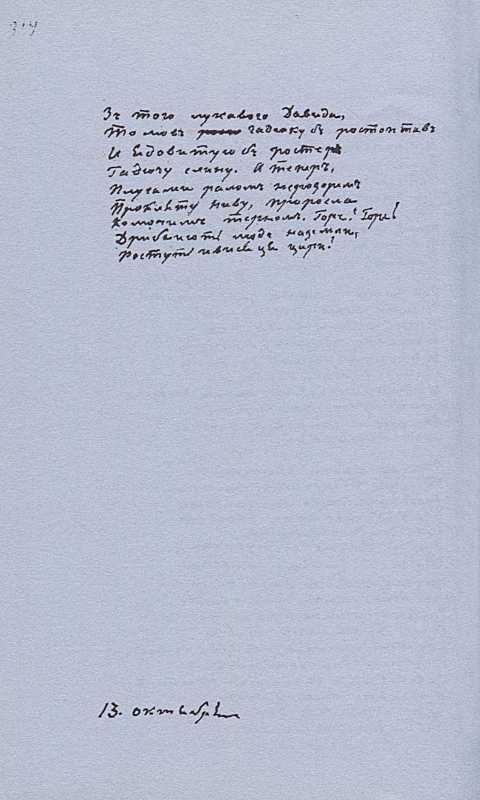 Зъ того лукавого Давида,
То мовъ гадюку бъ ростоптавъ
И Едовитую бъ ростеръ
Гадючу слину. А теперъ,
Плугами раломъ нерозоримъ
Прокляту ниву, проросла
Колючимъ терномъ. Горе! Горе!
Дрибниють люде наземли,
Ростуть ивисяця цари!
13. октября